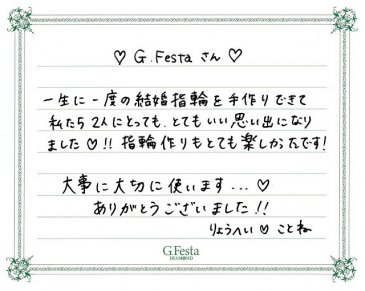 ♡ G.Festa さん ♡
一生に一度の結婚指輪を手作りできて
私たち2人にとっても、とてもいい思い出になり
ました♡!! 指輪作りもとても楽しかったです!
大事に大切に使います...♡
ありがとうございました!!
りょうへい♡ことね
G.Festa
DIAMOND